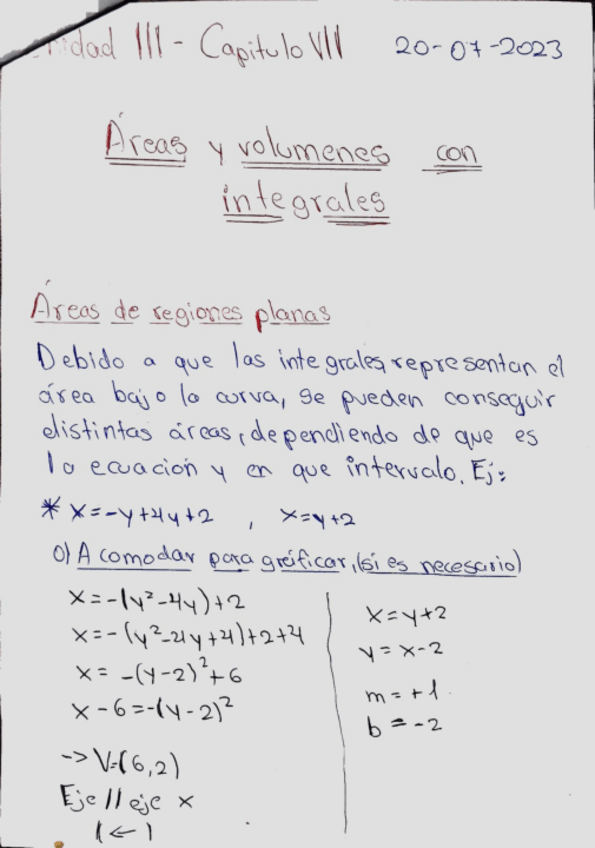 idad III - Capitulo VII 20-07-2023
Áreas y volumenes con
integrales
Áreas de regiones planas
Debido a que las integrales, representan el
área bajo la curva, se pueden conseguir
distintas áreas, dependiendo de que es
la ecuación y en que intervalo. Ej:
* x=-y+4y+2 , x=y+2
0) Acomodar para gráficar, (si es necesario)
x=-(y²-4y)+2
x=-(y²-4y+4)+2+4
x= -(y-2)²+6
x-6=-(y-2)²
-> V=(6,2)
Eje // eje x
(←)
x=y+2
y=x-2
m=+1
b=-2